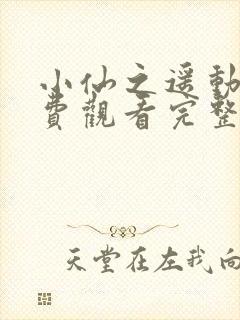 小仙之遥動
費觀看完整
天堂在左我向